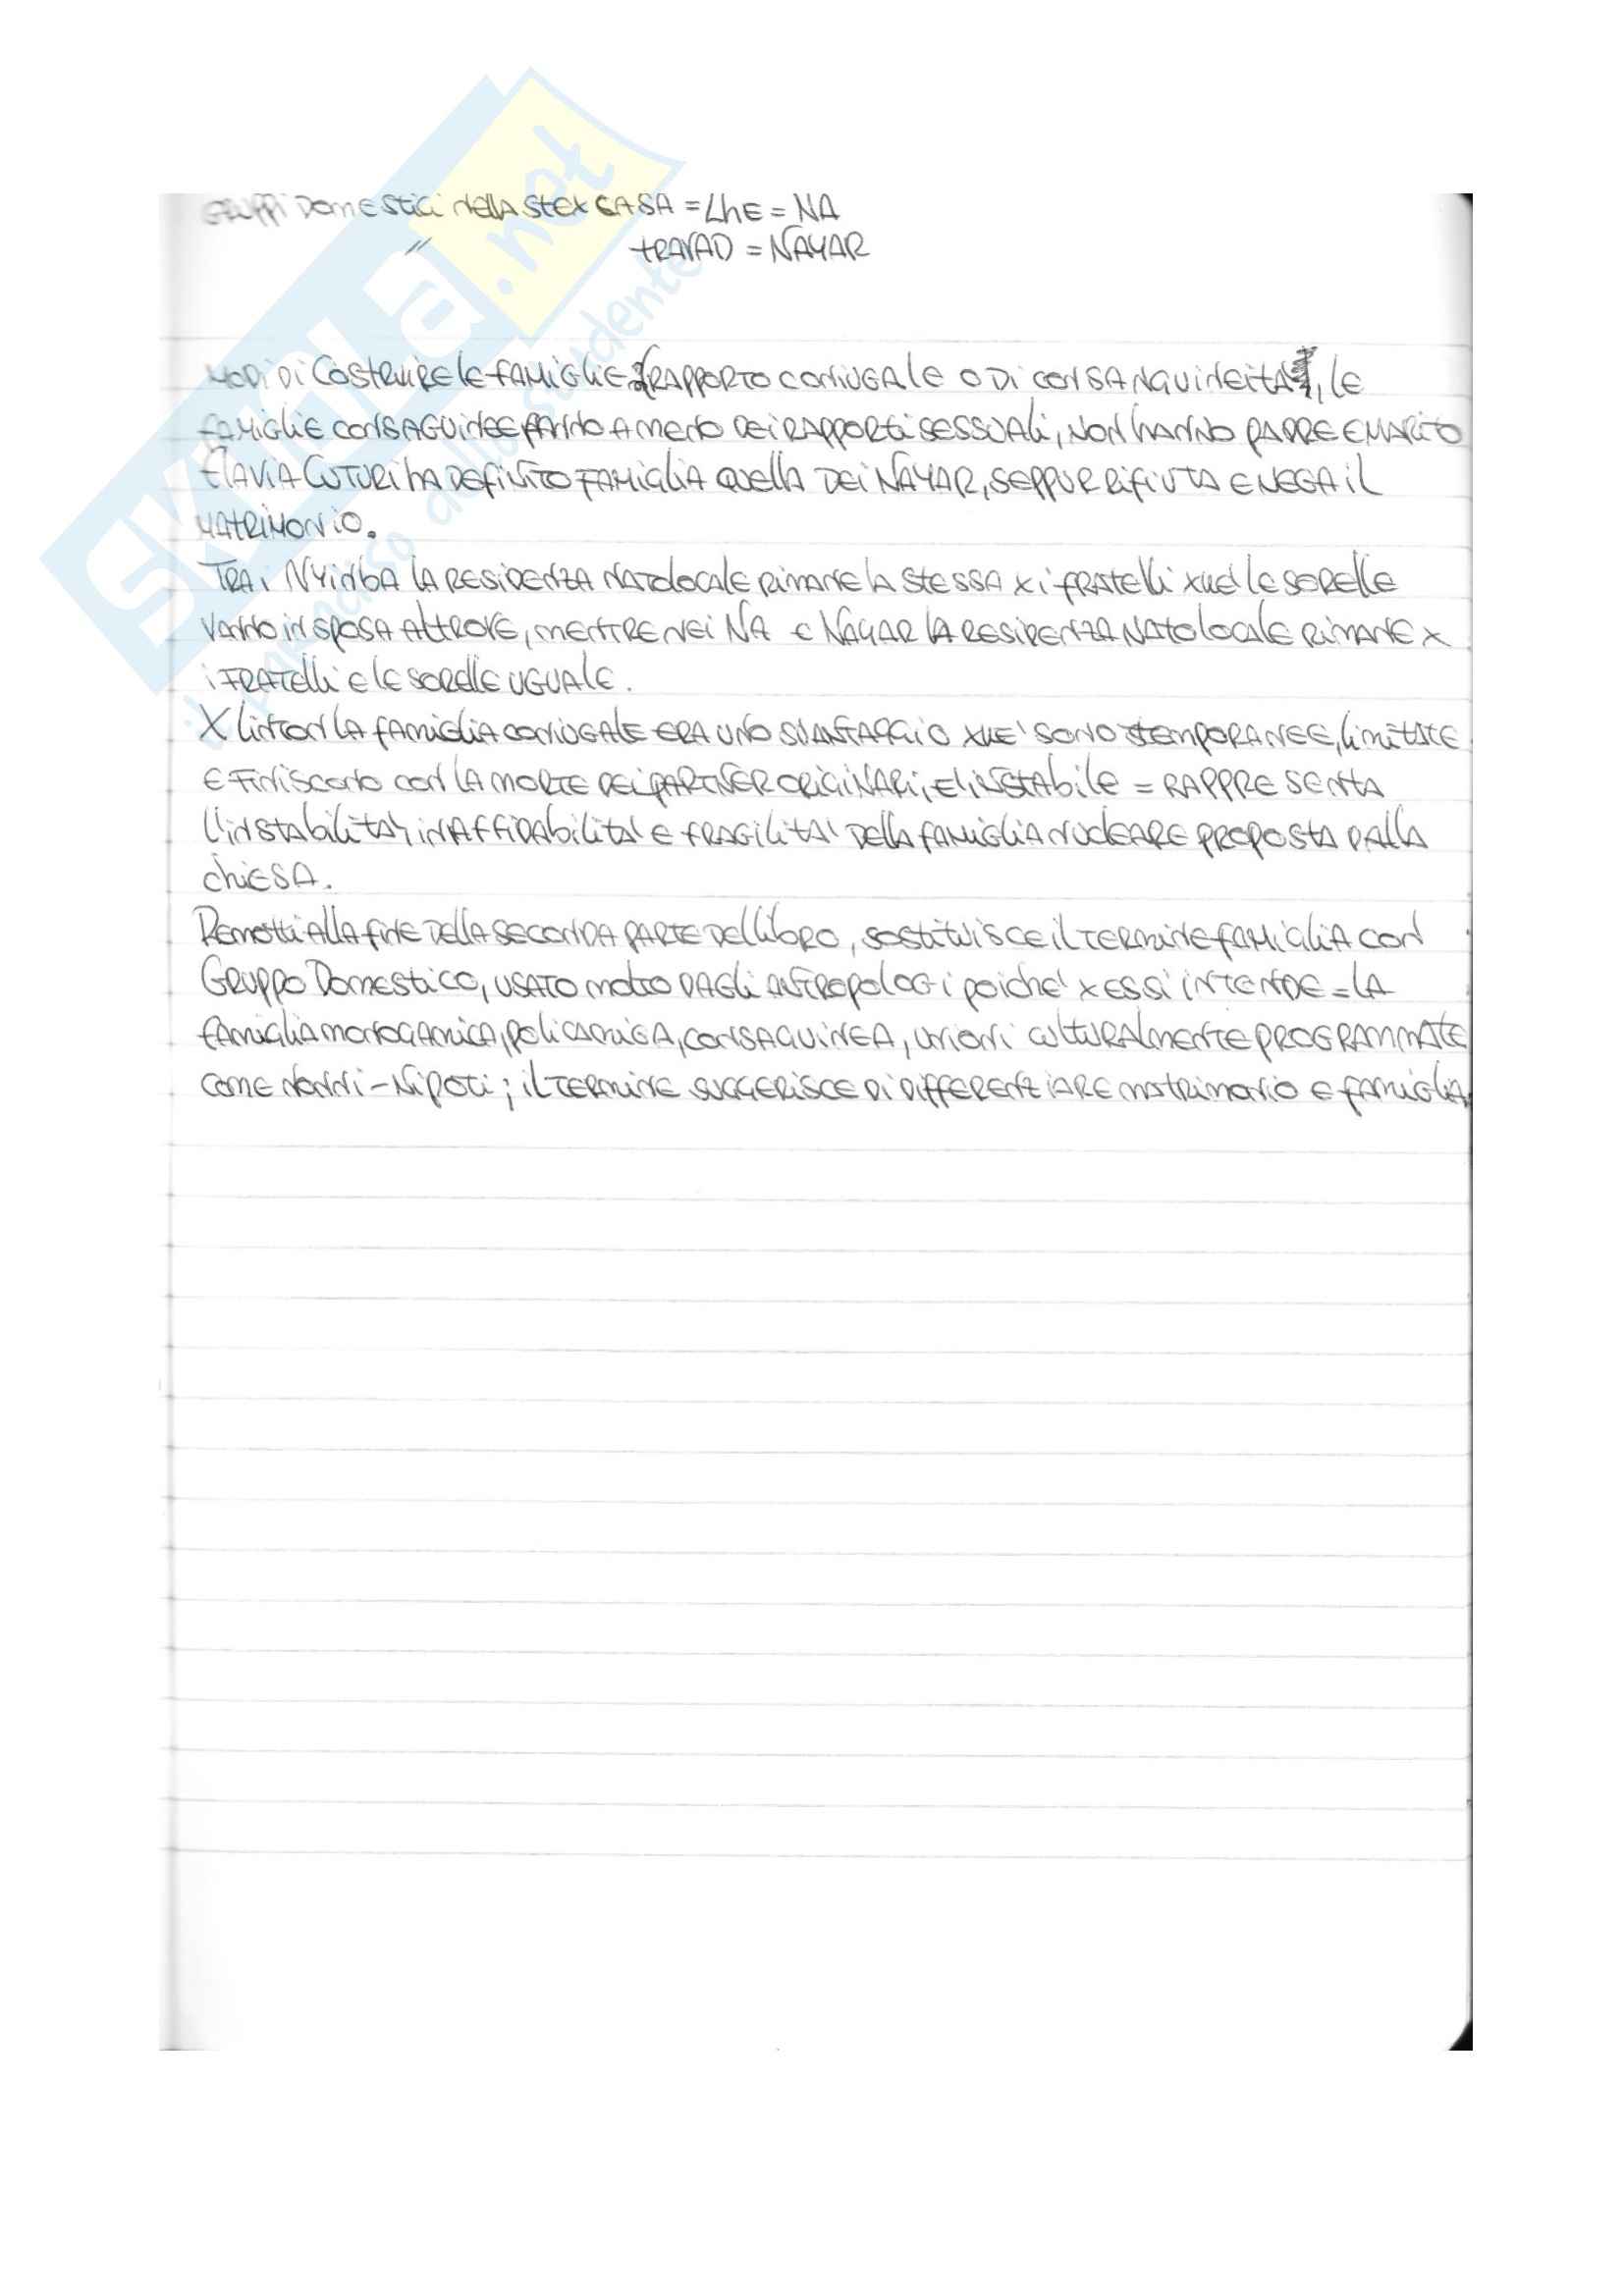 GRUPPI DOMESTICI NELLA STEX CASA = LHE = NA
" TRAVAD = NAYAR
MODI DI COSTRUIRE LE FAMIGLIE 2 (RAPPORTO CONIUGALE O DI CONSANGUINEITA', LE
FAMIGLIE CONSAGUINEE FANNO A MENO DEI RAPPORTI SESSUALI, NON HANNO PADRE E MARITO
FLAVIA CUTURI HA DEFINITO FAMIGLIA QUELLA DEI NAYAR, SEPPUR RIFIUTA E NEGA IL
MATRIMONIO.
TRA I NYINBA LA RESIDENZA NATOLOCALE RIMANE LA STESSA X I FRATELLI XKE' LE SORELLE
VANNO IN SPOSA ALTROVE, MENTRE NEI NA E NAYAR LA RESIDENZA NATOLOCALE RIMANE X
I FRATELLI E LE SORELLE UGUALE.
X LINTON LA FAMIGLIA CONIUGALE ERA UNO SVANTAGGIO XKE' SONO TEMPORANEE, LIMITATE
E FINISCONO CON LA MORTE DEI PARTNER ORIGINARI, E' INSTABILE = RAPPRESENTA
L'INSTABILITA', INAFFIDABILITA' E FRAGILITA' DELLA FAMIGLIA NUCLEARE PROPOSTA DALLA
CHIESA.
REMOTTI ALLA FINE DELLA SECONDA PARTE DEL LIBRO, SOSTITUISCE IL TERMINE FAMIGLIA CON
GRUPPO DOMESTICO, USATO MOLTO DAGLI ANTROPOLOGI POICHE' X ESSI INTENDE = LA
FAMIGLIA MONOGAMICA, POLIGAMICA, CONSAGUINEA, UNIONI CULTURALMENTE PROGRAMMATE
COME NONNI - NIPOTI; IL TERMINE SUGGERISCE DI DIFFERENZIARE MATRIMONIO E FAMIGLIA.
SKUOLA.net
il paradiso dello studente